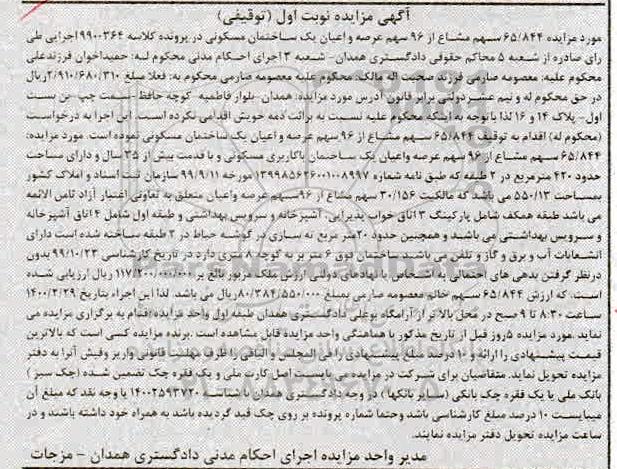 آگهی مزایده نوبت اول (توقیفی)
مورد مزایده ۶۵/۸۴۴ سهم مشاع از ۹۶ سهم عرصه و اعیان یک ساختمان مسکونی در پرونده کلاسه ۹۹۰۰۳۶۴ اجرایی طی
رای صادره از شعبه ۵ محاکم حقوقی دادگستری همدان- شعبه ۳ اجرای احکام مدنی محکوم لـه: حمیداخوان فرزندعلی
محکوم علیه: معصومه صارمی فرزند صحبت اله مالکیت محکوم علیه معصومه صارمی محکوم به: فعلا مبلغ ۲/۹۱۰/۶۸۰/۳۱۰ریال
در حق محکوم له و نیم عشردولتی برابر قانون آدرس مورد مزایده: همدان-بلوار فاطمیه- کوچه حافظ- سمت چپ-بن بست
اول- پلاک ۱۴ و ۱۶ لذا با توجه به اینکه محکوم علیه نسبت به برائت ذمه خویش اقدامی نکرده است. این اجرا به درخواست
(محکوم له) اقدام به توقیف ۶۵/۸۴۴ سهم مشاع از ۹۶ سهم عرصه و اعیان یک ساختمان مسکونی نموده است. مورد مزایده:
۶۵/۸۴۴ سهم مشاع از ۹۶ سهم عرصه واعیان یک ساختمان باکاربری مسکونی و با قدمت بیش از ۳۵ سال و دارای مساحت
حدود ۴۲۰ مترمربع در ۲ طبقه که طبق نامه شماره ۱۳۹۹۸۵۶۲۶۰۰۱۰۰۸۹۹۷ مورخه ۹۹/۹/۱۱ سازمان ثبت اسناد و املاک کشور
بمساحت ۵۵۰/۱۳ می باشد که مالکیت ۳۰/۱۵۶ سهم مشاع از ۹۶سهم عرصه واعیان متعلق به تعاونی اعتبار آزاد ثامن الائمه
می باشد طبقه همکف شامل پارکینگ ۳ اتاق خواب پذیرایی، آشپزخانه و سرویس بهداشتی و طبقه اول شامل ۴ اتاق آشپزخانه
و سرویس بهداشتی می باشند و همچنین حدود ۲۰متر مربع ته سازی در گوشه حیاط در ۲ طبقه ساخته شده است دارای
انشعابات آب و برق و گاز و تلفن می باشند.ساختمان فوق ۶ متر بر به کوچه ۸ متری دارد در تاریخ کارشناسی ۹۹/۱۰/۲۳ بدون
درنظر گرفتن بدهی های احتمالی به اشخاص یا نهادهای دولتی ارزش ملک مزبور بالغ بر ۱۱۷/۲۰۰/۰۰۰/۰۰۰ ریال ارزیابی شده
است. که ارزش ۶۵/۸۴۴ سهم خانم معصومه صارمی بمبلغ ۸۰/۳۸۴/۵۵۰/۰۰۰ریال می باشد. لذا این اجراء بتاریخ ۱۴۰۰/۲/۲۹
ساعت ۸:۳۰ تا ۹ صبح در محل بالاتر از آرامگاه بوعلی دادگستری همدان طبقه اول واحد مزایده اقدام به برگزاری مزایده می
نماید .مورد مزایده ۵روز قبل از تاریخ مذکور با هماهنگی واحد مزایده قابل مشاهده است .برنده مزایده کسی است که بالاترین
قیمت پیشنهادی را ارائه و ۱۰ درصد مبلغ پیشنهادی را فی المجلس و الباقی را ظرف مهلت قانونی واریز وفیش آنرا به دفتر
مزایده تحویل نماید. متقاضیان برای شرکت در مزایده می بایست اصل کارت ملی و یک فقره چک تضمین شده (چک سبز )
بانک ملی یا یک فقره چک بانکی (سایر بانکها ) در وجه دادگستری همدان با شناسه ۱۴۰۰۲۵۹۳۷۲۰ یا وجه نقد که مبلغ آن
میبایست ۱۰ درصد مبلغ کارشناسی باشد وحتما شماره پرونده بر روی چک قید گردیده باشد به همراه خود داشته باشند و در
ساعت مزایده تحویل دفتر مزایده نمایند.
مدیر واحد مزایده اجرای احکام مدنی دادگستری همدان - مزجات